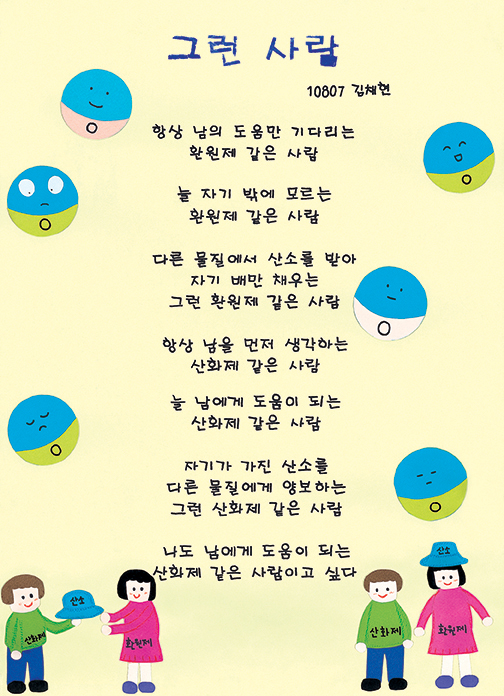 그런 사람
10807 김채현
항상 남의 도움만 기다리는
환원제 같은 사람
늘 자기 밖에 모르는
환원제 같은 사람
다른 물질에서 산소를 받아
자기 배만 채우는
그런 환원제 같은 사람
항상 남을 먼저 생각하는
산화제 같은 사람
늘 남에게 도움이 되는
산화제 같은 사람
자기가 가진 산소를
다른 물질에게 양보하는
그런 산화제 같은 사람
나도 남에게 도움이 되는
산화제 같은 사람이고 싶다
O
O
O
O
O
O
산소
산화제
환원제
산소
산화제
환원제